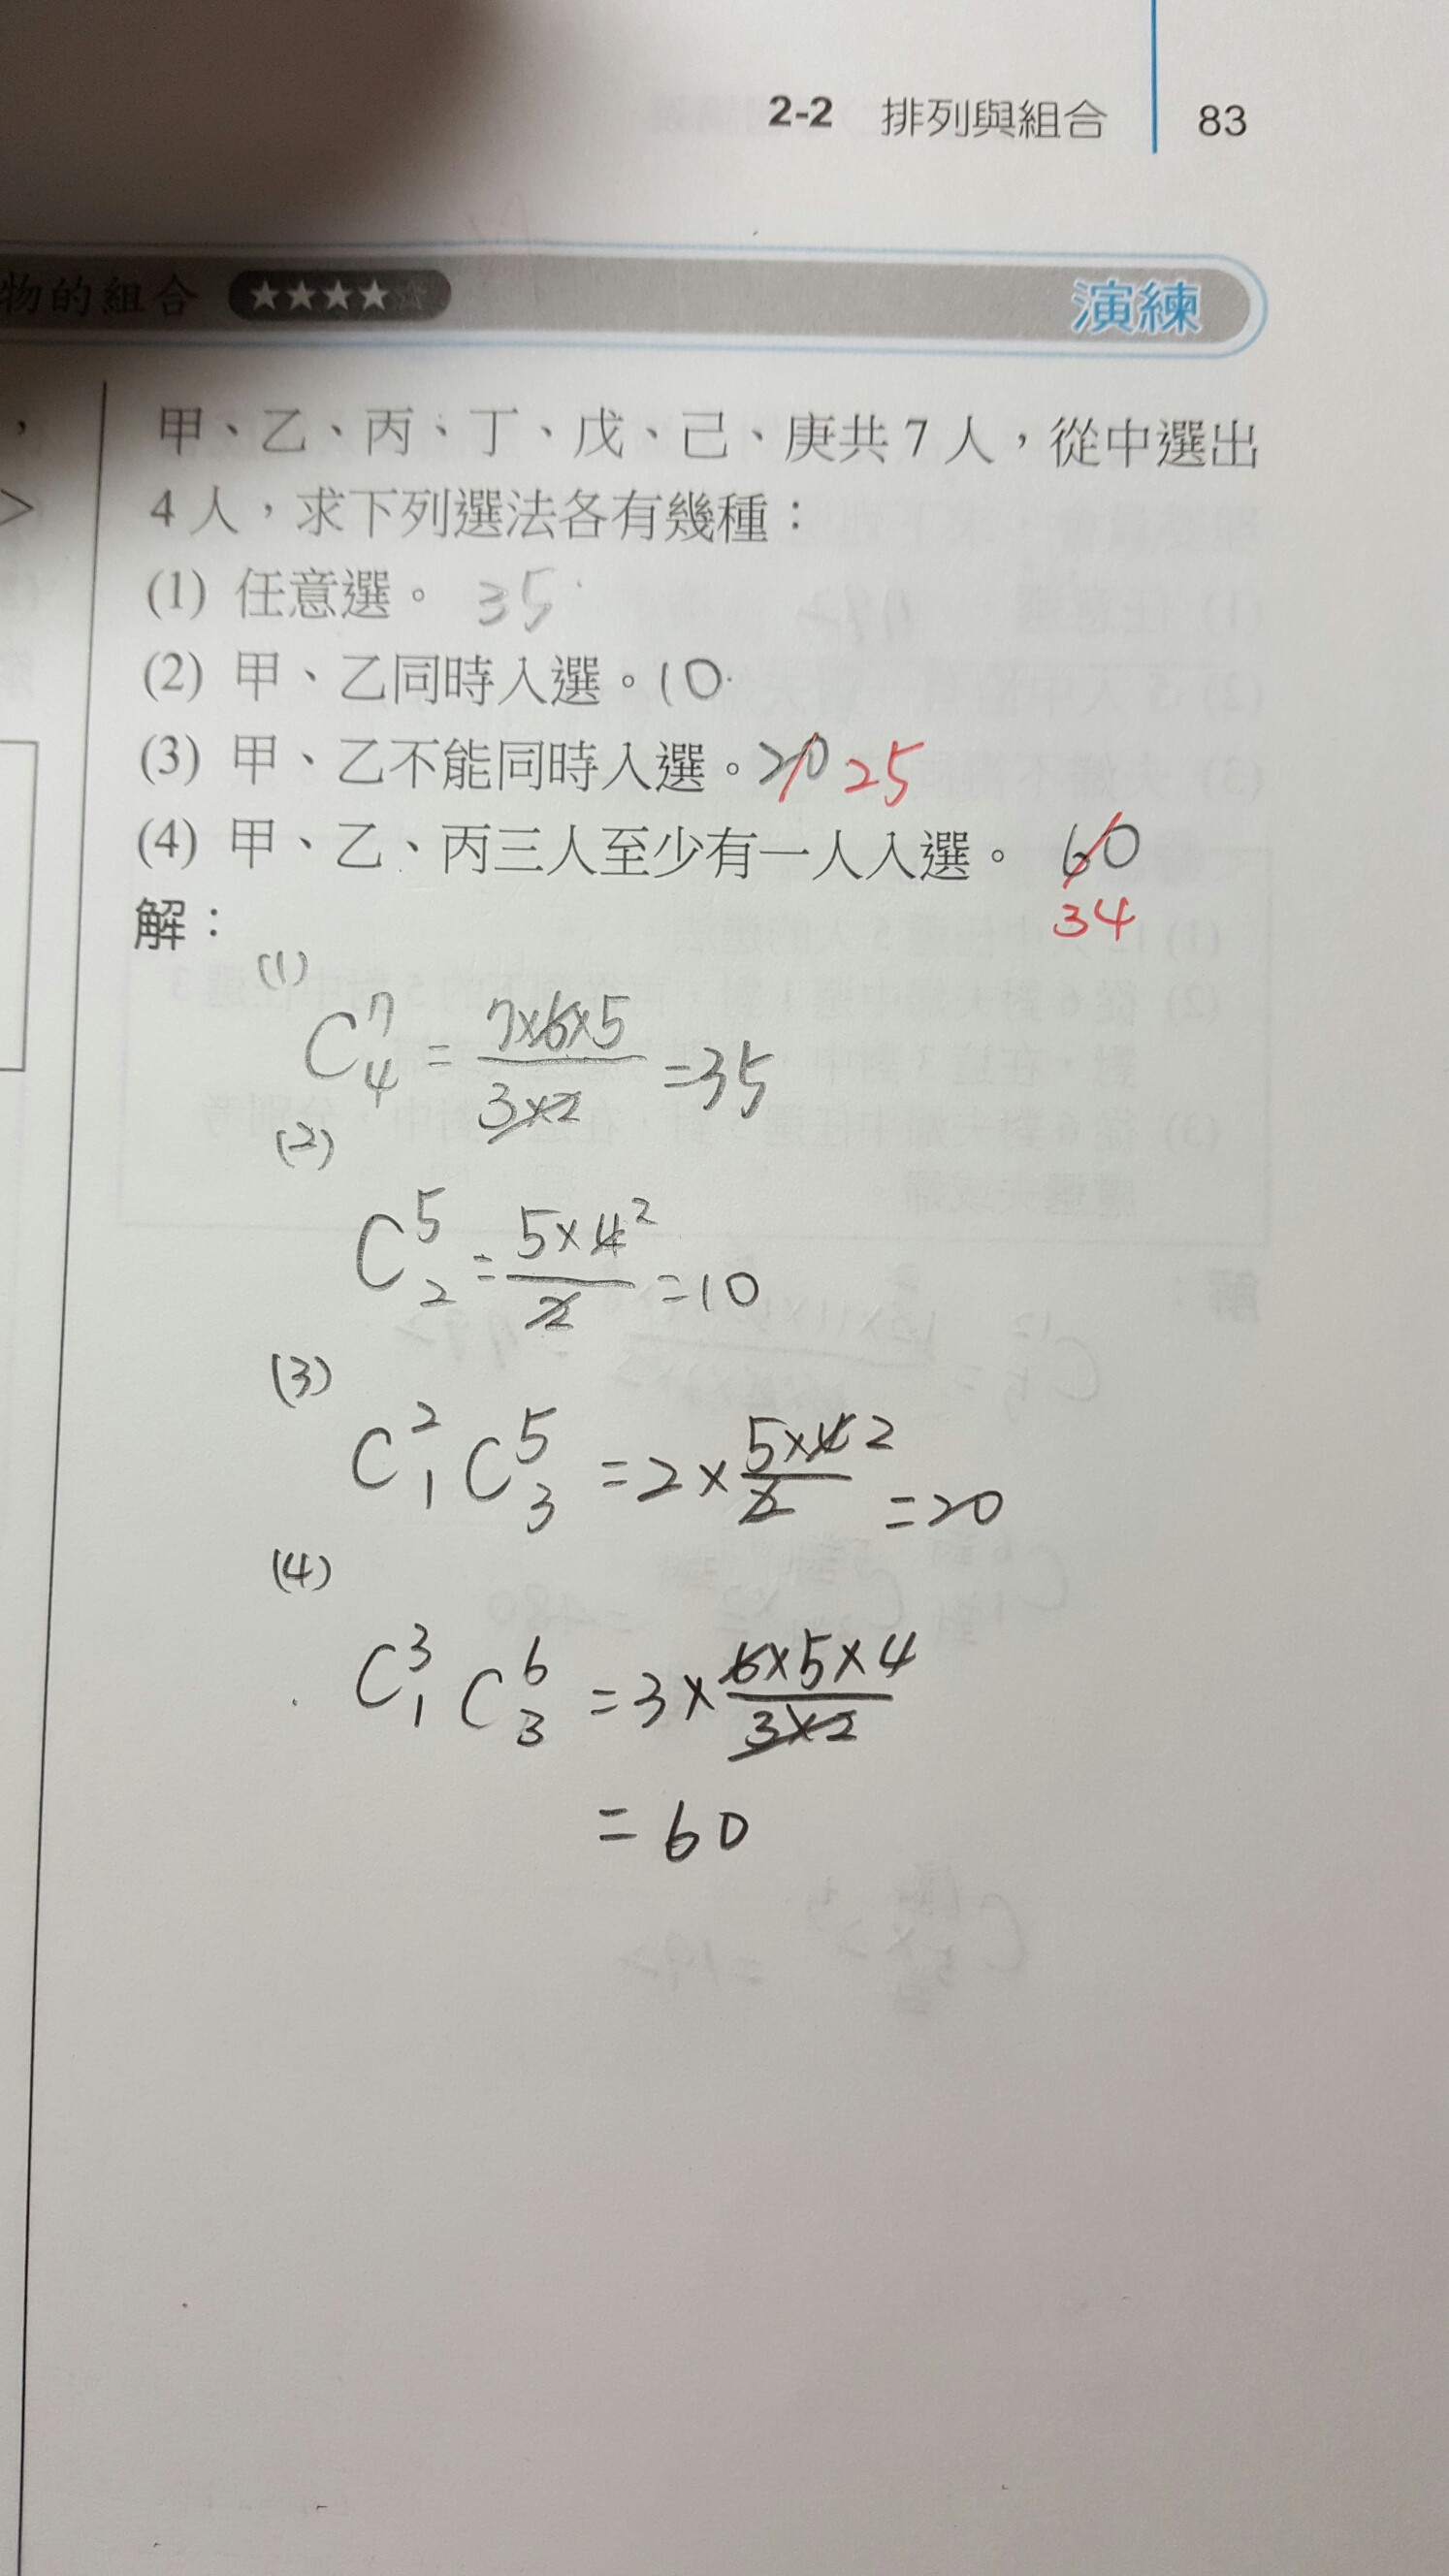 2-2 排列與組合 83
物的組合 ★★★★☆ 演練
，
甲、乙、丙、丁、戊、己、庚共 7 人，從中選出
>
4 人，求下列選法各有幾種：
(1) 任意選。 35
(2) 甲、乙同時入選。10
(3) 甲、乙不能同時入選。20 25
(4) 甲、乙、丙三人至少有一人入選。 60
34
解：
(1)
C⁷₄ = 7×6×5 / 3×2 = 35
(2)
C⁵₂ = 5×4 2 / 2 = 10
(3)
C²₁ C⁵₃ = 2 × 5×4 2 / 2 = 20
(4)
C³₁ C⁶₃ = 3 × 6×5×4 / 3×2
= 60